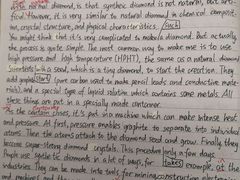 diamond, is that synthetic diamond is not natural, but arti-
ficial. However, it is very similar to natural diamond in chemical composi-
tion, crystal structure, and physical characteristics. Such
You might think that it's very complicated to make diamond. But actually,
the process is quite simple. The most common way to make one is to use
high pressure and high temperature (HPHT), the same as a natural diamond
Scientists with a seed, which is a tiny diamond, to start the creation. They
add graphite (art can be used to make pencil leads and conductive mate-
rials), and a special type of liquid solution which contains some metals. All
these things are put in a specially made container.
the carbon, it's put in a machine which can make intense heat
and pressure. At first, pressure enables graphite to separate into individual
atoms. Then the atoms attach to the diamond seed and grow. Finally, they
become super-strong diamond crystals. This procedure only a few days.
People use synthetic diamonds in a lot of ways, for takes example, at the
industries. They can be made into tools for mining, construction,